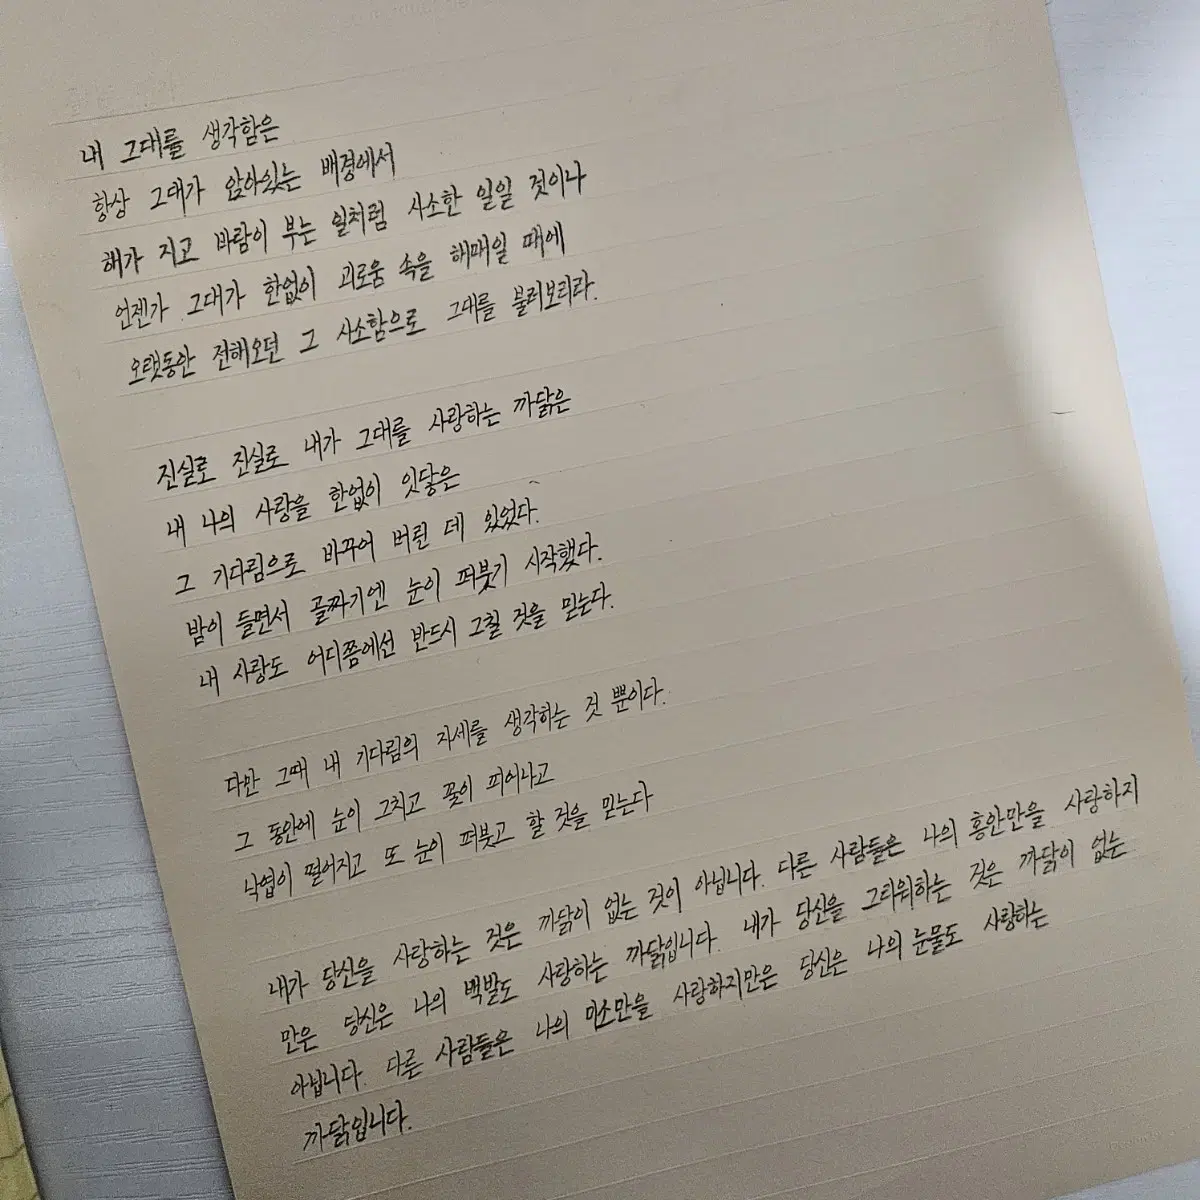 내 그대를 생각함은
항상 그대가 앉아있는 배경에서
해가 지고 바람이 부는 일처럼 사소한 일일 것이나
언젠가 그대가 한없이 괴로움 속을 해매일 때에
오랫동안 전해오던 그 사소함으로 그대를 불러보리라.
진실로 진실로 내가 그대를 사랑하는 까닭은
내 나의 사랑을 한없이 잇닿은
그 기다림으로 바꾸어 버린 데 있었다.
밤이 들면서 골짜기엔 눈이 퍼붓기 시작했다.
내 사랑도 어디쯤에선 반드시 그칠 것을 믿는다.
다만 그때 내 기다림의 자세를 생각하는 것 뿐이다.
그 동안에 눈이 그치고 꽃이 피어나고
낙엽이 떨어지고 또 눈이 퍼붓고 할 것을 믿는다
내가 당신을 사랑하는 것은 까닭이 없는 것이 아닙니다. 다른 사람들은 나의 홍안만을 사랑하지
만은 당신은 나의 백발도 사랑하는 까닭입니다. 내가 당신을 그리워하는 것은 까닭이 없는
아닙니다. 다른 사람들은 나의 미소만을 사랑하지만은 당신은 나의 눈물도 사랑하는
까닭입니다.